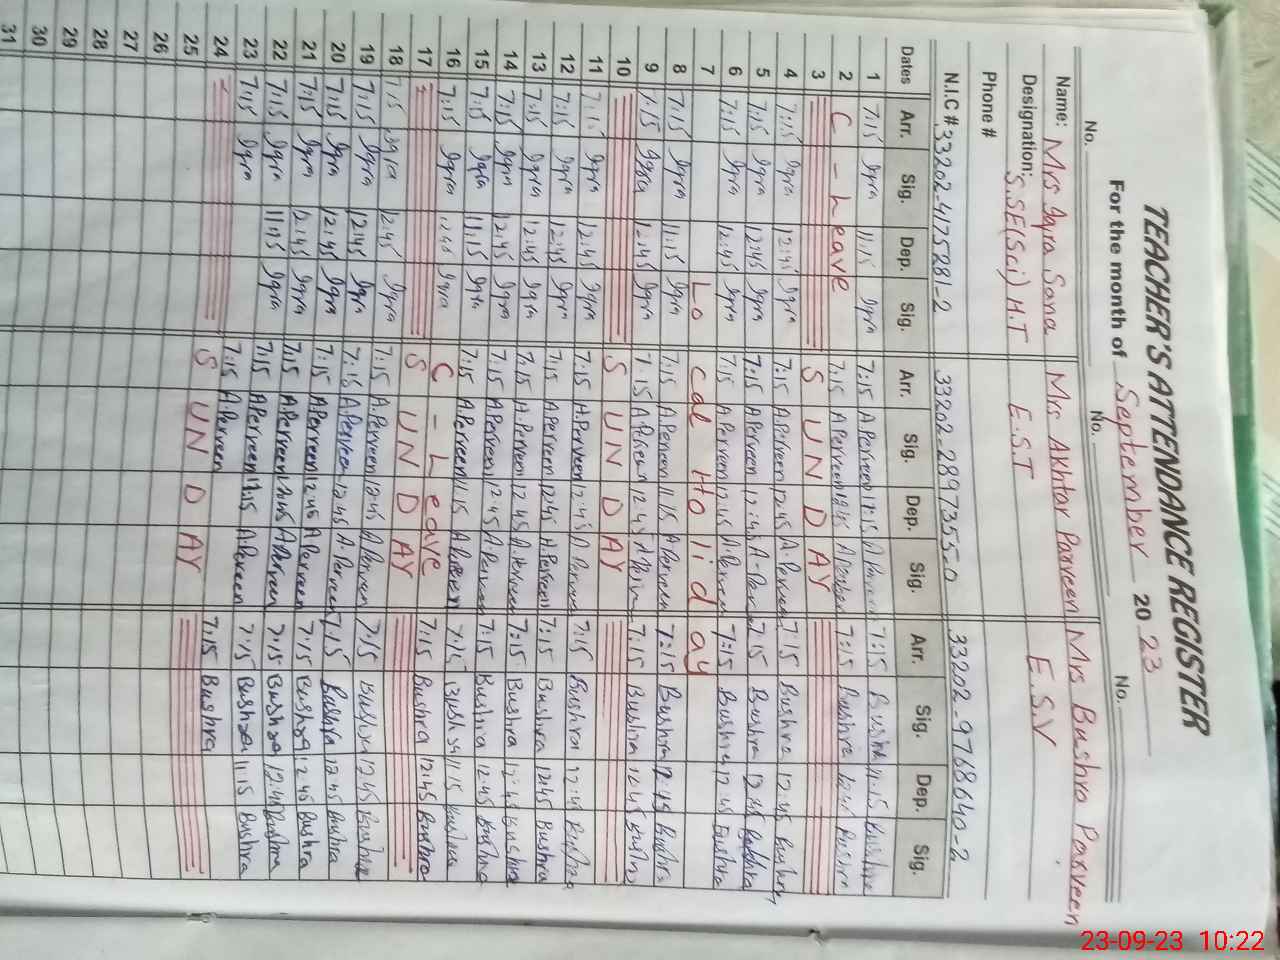 TEACHER'S ATTENDANCE REGISTER
For the month of September 2023
No. No. No.
Name: Mrs Iqra Sana Mrs Akhtar Parveen Mrs Bushra Parveen
Designation: S.SE(Sci) H.T E.S.T E.S.V
Phone #
N.I.C # 33202-4175281-2 33202-2897355-0 33202-9768640-2
Dates Arr. Sig. Dep. Sig. Arr. Sig. Dep. Sig. Arr. Sig. Dep. Sig.
1 7:15 Iqra 11:15 Iqra 7:15 A Perveen 11:15 A Perveen 7:15 Bushra 11:15 Bushra
2 C - Leave 7:15 A Perveen 12:45 A Perveen 7:15 Bushra 12:45 Bushra
3 SUNDAY
4 7:15 Iqra 12:45 Iqra 7:15 A Perveen 12:45 A. Perveen 7:15 Bushra 12:45 Bushra
5 7:15 Iqra 12:45 Iqra 7:15 A Perveen 12:45 A. Perveen 7:15 Bushra 12:45 Bushra
6 7:15 Iqra 12:45 Iqra 7:15 A Perveen 12:45 A. Perveen 7:15 Bushra 12:45 Bushra
7 Local Holiday
8 7:15 Iqra 11:15 Iqra 7:15 A Perveen 11:15 A Perveen 7:15 Bushra 12:45 Bushra
9 7:15 Iqra 12:45 Iqra 7:15 A Perveen 12:45 A Perveen 7:15 Bushra 12:45 Bushra
10 SUNDAY
11 7:15 Iqra 12:45 Iqra 7:15 A.Perveen 12:45 A Perveen 7:15 Bushra 12:45 Bushra
12 7:15 Iqra 12:45 Iqra 7:15 A.Perveen 12:45 A.Perveen 7:15 Bushra 12:45 Bushra
13 7:15 Iqra 12:45 Iqra 7:15 A.Perveen 12:45 A.Perveen 7:15 Bushra 12:45 Bushra
14 7:15 Iqra 12:45 Iqra 7:15 A.Perveen 12:45 A.Perveen 7:15 Bushra 12:45 Bushra
15 7:15 Iqra 11:15 Iqra 7:15 A.Perveen 11:15 A.Perveen 7:15 Bushra 11:15 Bushra
16 7:15 Iqra 12:45 Iqra C - Leave 7:15 Bushra 12:45 Bushra
17 SUNDAY
18 7:15 Iqra 12:45 Iqra 7:15 A.Perveen 12:45 A Perveen 7:15 Bushra 12:45 Bushra
19 7:15 Iqra 12:45 Iqra 7:15 A.Perveen 12:45 A. Perveen 7:15 Bushra 12:45 Bushra
20 7:15 Iqra 12:45 Iqra 7:15 A.Perveen 12:45 A Perveen 7:15 Bushra 12:45 Bushra
21 7:15 Iqra 12:45 Iqra 7:15 A.Perveen 12:45 A.Perveen 7:15 Bushra 12:45 Bushra
22 7:15 Iqra 11:15 Iqra 7:15 A.Perveen 11:15 A.Perveen 7:15 Bushra 11:15 Bushra
23 7:15 Iqra 7:15 A.Perveen 7:15 Bushra
24 SUNDAY
25
26
27
28
29
30
31
23-09-23 10:22